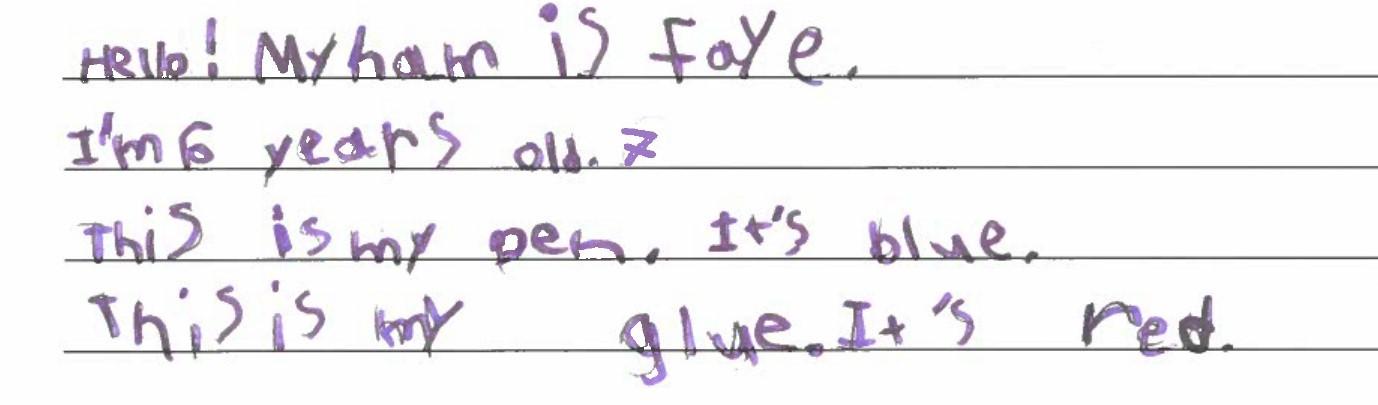 Hello! My nam is Faye.
I'm 6 years old. 7
This is my pen. It's blue.
This is my glue. It's red.